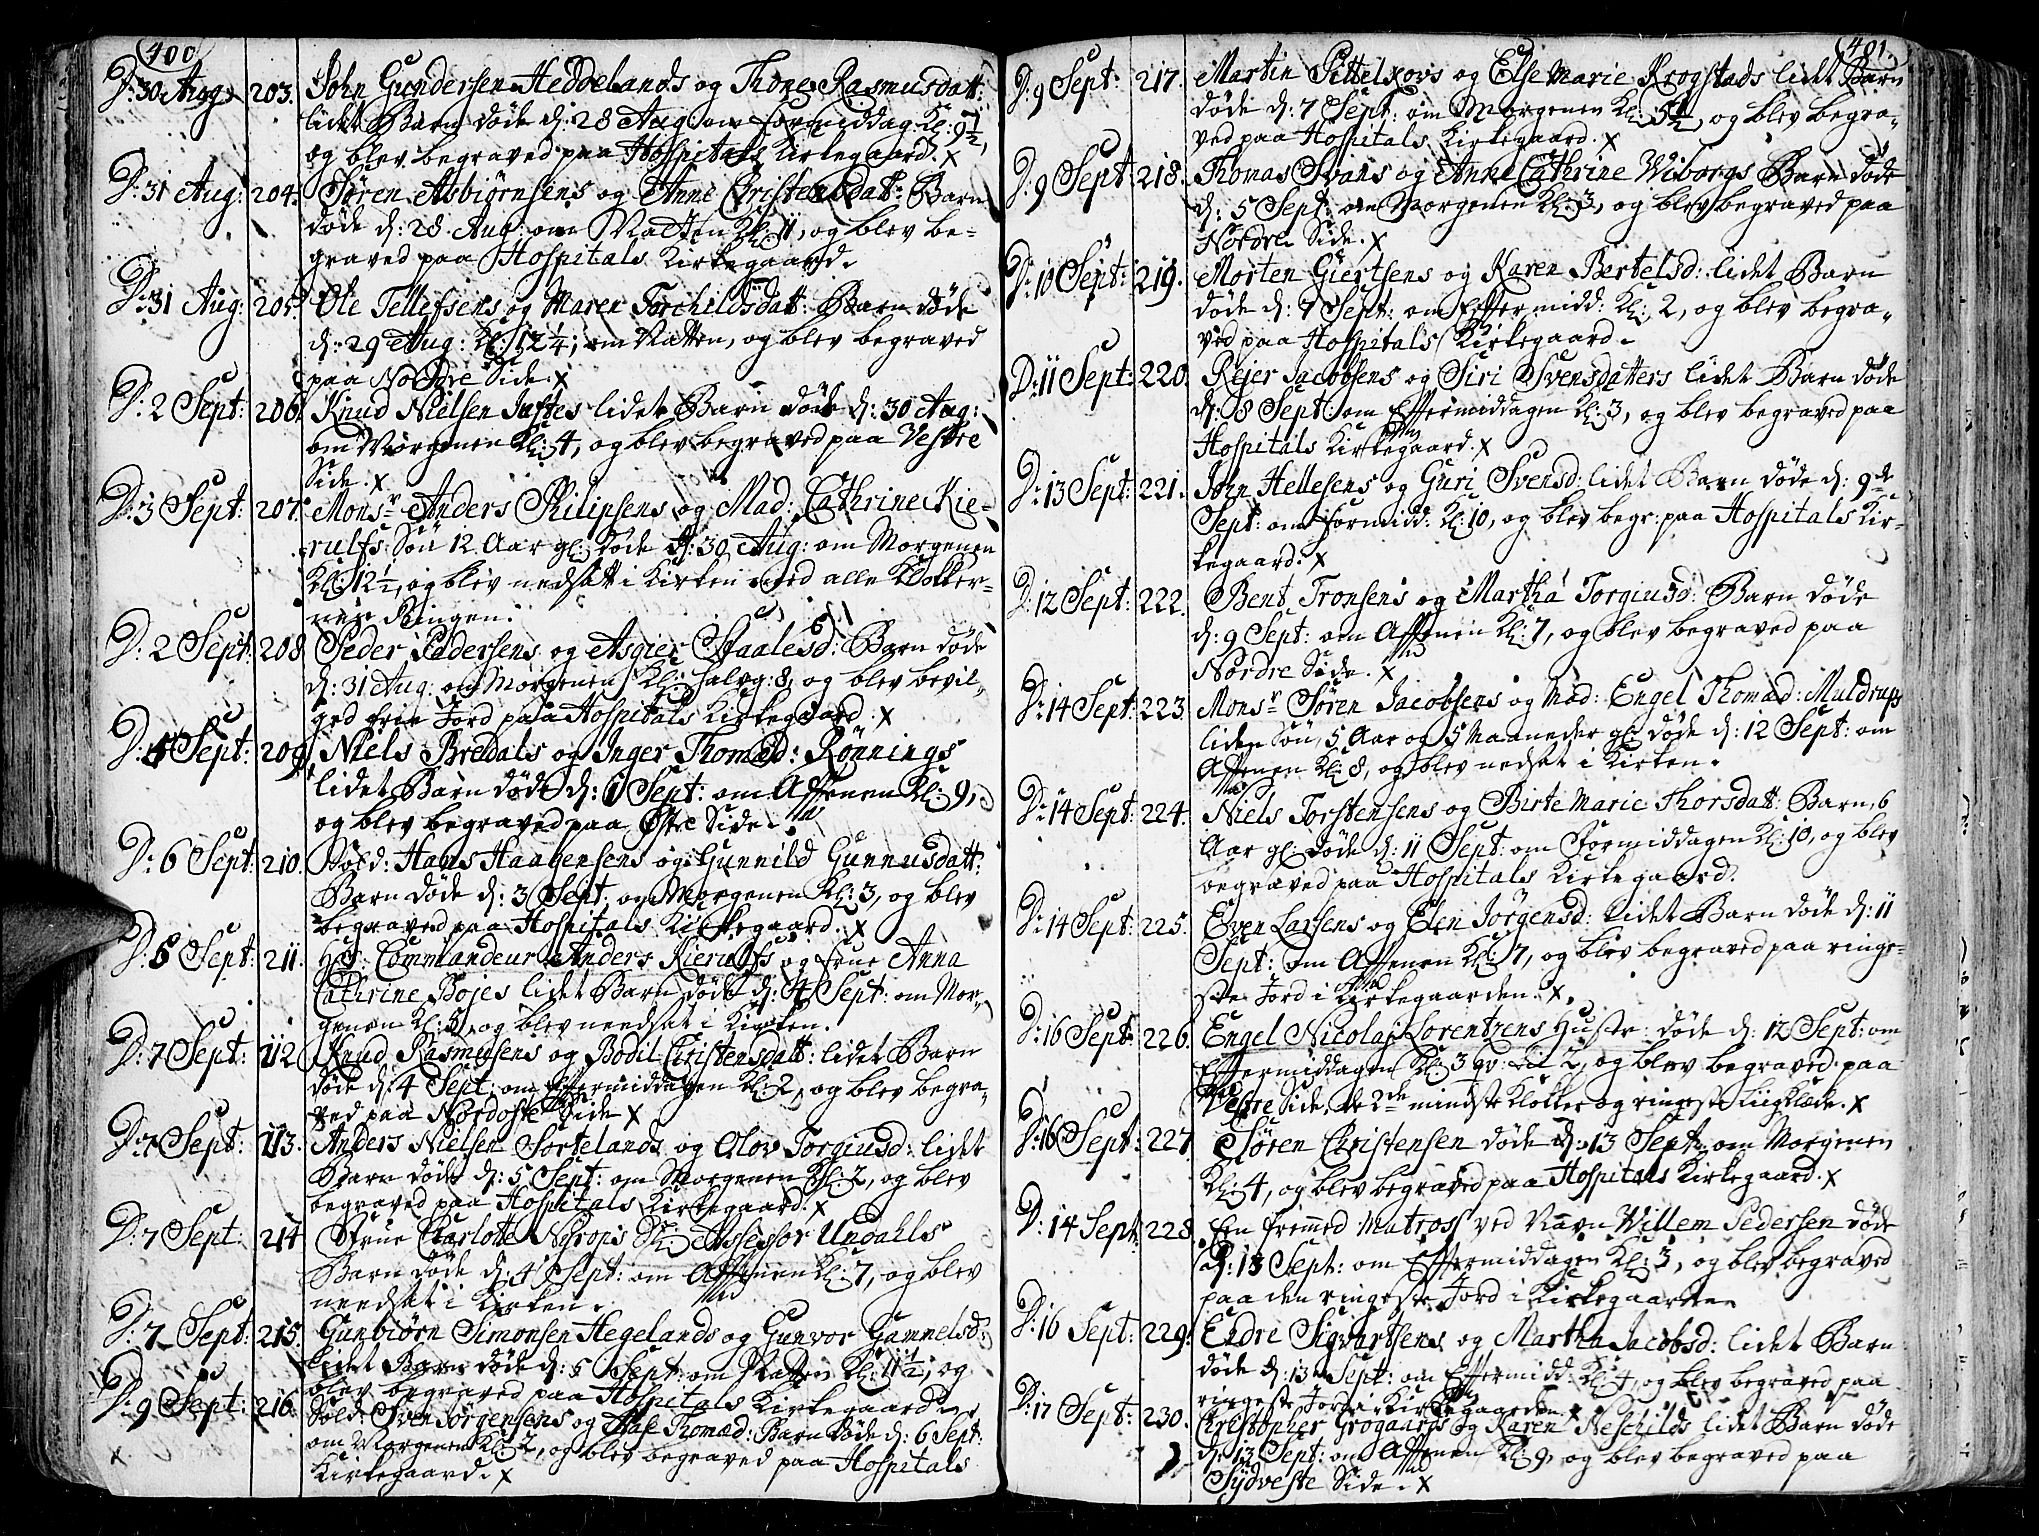 400
D: 30 Aug: 203. John Gundersen Heddelands og Thone Rasmusdatt:
lidet Barn døde d: 28 Aug om Formiddag Kl: 9 1/2,
og blev begraved paa Hospitals Kirkegaard. x
D: 31 Aug: 204. Søren Asbiørnsens og Anne Christensdat: Barn
døde d: 28. Aug: om Natten Kl: 11, og blev be-
graved paa Hospitals Kirkegaard.
D: 31 Aug: 205. Ole Tellefsens og Maren Torchildsdatt: Barn døde
d: 29 Aug: Kl: 12 1/4, om Natten, og blev begraved
paa Nordre Side. x
D: 2 Sept: 206. Knud Nielsen Justes lidet Barn døde d: 30 Aug:
om Morgenen Kl: 4, og blev begraved paa Vestre
Side. x
D: 3 Sept: 207. Monsr Anders Philipsens og Mad: Cathrine Kie-
rulfs Søn 12 Aar gl: døde d: 30 Aug: om Morgenen
Kl: 12 1/2, og blev nedsatt i Kirken med alle Klokker-
nes Ringen.
D: 2 Sept: 208 Peder Pedersens og Asgier Staalesd: Barn døde
d: 31 Aug: om Morgenen Kl: halvg: 8, og blev bevil-
ged frie Jord paa Hospitals Kirkegaard. x
D: 4 Sept: 209 Niels Bredals og Inger Thomæd: Rønnings
lidet Barn døde d: 1 Sept: om Afftenen Kl: 9,
og blev begraved paa Østre Side.
D: 6 Sept: 210. Sold: Hans Haagensens og Gunnild Gunnusdatt:
Barn døde d: 3 Sept. om Morgenen Kl: 3, og blev
begraved paa Hospitals Kirkegaard. x
D: 6 Sept: 211. Hr: Commandeur Anders Kierulfs og Frue Anna
Cathrine Bojes lidet Barn døde d: 4 Sept: om Mor-
genen Kl: 5, og blev neendsat i Kirken.
D: 7 Sept: 212 Knud Rasmusens og Bodil Christensdatt: lidet Barn
døde d: 4 Sept: om Eftermiddagen Kl: 2, og blev begra-
ved paa Nordoste Side x
D: 7 Sept: 213. Anders Nielsen Sortelands og Olov Torgiusd: lidet
Barn døde d: 5 Sept: om Morgenen Kl: 2, og blev
begraved paa Hospitals Kirkegaard. x
D: 7 Sept: 214 Frue Charlotte Assessor Undahls
Barn døde d: 4 Sept: om Afftenen Kl: 7, og blev
neendsat i Kirken.
D: 7 Sept: 215. Gunbiørn Simonsen Hegelands og Gunvor Gammelsd:
lidet Barn døde d: 5 Sept: om Natten Kl: 11 1/2, og
blev begraved paa Hospitals Kirkegaard
D: 9 Sept: 216. Sold: Sven Jørgensens og Thomæd: Barn døde d: 6 Sept:
om Morgenen Kl: 2, og blev begraved paa Hospitals
x Kirkegaard. x
401.
D: 9 Sept: 217. Martin Pittelkovs og Else Marie Krogstads lidet Barn
døde d: 7 Sept: om Morgenen Kl: 5 1/2, og blev begra-
ved paa Hospitals Kirkegaard. x
D: 9 Sept 218. Thomas Svans og Anne Cathrine Wiborgs Barn døde
d: 5 Sept: om Morgenen Kl: 3, og blev begraved paa
Nordre Side. x
D: 10 Sept: 219. Morten Giertsens og Karen Bertelsd: lidet Barn
døde d: 7 Sept: om Eftermidd: Kl: 2, og blev begra-
ved paa Hospitals Kirkegaard.
D: 11 Sept: 220. Rejer Jacobsens og Siri Svensdatters lidet Barn døde
d: 8 Sept om Eftermiddagen Kl: 3, og blev begraved paa
Hospitals Kirkegaard. x
D: 13 Sept: 221. John Hellesens og Guri Svensd: lidet Barn døde d: 9de
Sept: om Formidd: Kl: 10, og blev begr: paa Hospitals Kir-
kegaard. x
D: 12 Sept: 222. Bent Tronsens og Martha Torgiusd: Barn døde
d: 9 Sept: om Afftenen Kl: 7, og blev begraved paa
Nordre Side. x
D: 14 Sept: 223 Monsr Søren Jacobsens og Mad: Engel Thomæd: Muldrups
liden Søn, 5 Aar og 5 Maaneder gl: døde d: 12 Sept: om
Afftenen Kl: 8, og blev nedsat i Kirken.
D: 14 Sept: 224. Niels Torstensens og Birte Marie Thorsdatt: Barn, 6
Aar gl: døde d: 11 Sept: om Formiddagen Kl: 10, og blev
begraved paa Hospitals Kirkegaard.
D: 14 Sept: 225. Even Larsens og Elen Jørgensd: lidet Barn døde d: 11
Sept: om Afftenen Kl: 7, og blev begraved paa ringe-
ste Jord i Kirkegaarden. x.
D: 16 Sept: 226. Engel Nicolaj Lorentzens Hustr: døde d: 12 Sept: om
Eftermiddagen Kl: 3 2, og blev begraved paa
Vestre Side, de 2de mindste Klokker og ringeste Liigklæde. x
D: 16 Sept: 227 Søren Christensen døde d: 13 Sept: om Morgenen
Kl: 4, og blev begraved paa Hospitals Kirkegaard. x
D: 14 Sept: 228. En fremmed Matross ved Navn Willem Pedersen døde
d: 13 Sept: om Eftermiddagen Kl: 3, og blev begraved
paa den ringeste Jord i Kirkegaarden
D: 16 Sept: 229. Endre Sigvartsens og Martha Jacobsd: lidet Barn
døde d: 13 Sept: om Eftermidd: Kl: 4, og blev begraved paa
ringeste Jord i Kirkegaarden. x
D: 17 Sept: 230. Christopher Grogaards og Karen Neschilds lidet Barn døde
d: 13 Sept: om Afftenen Kl: 9, og blev begraved paa
Sydveste Side. x